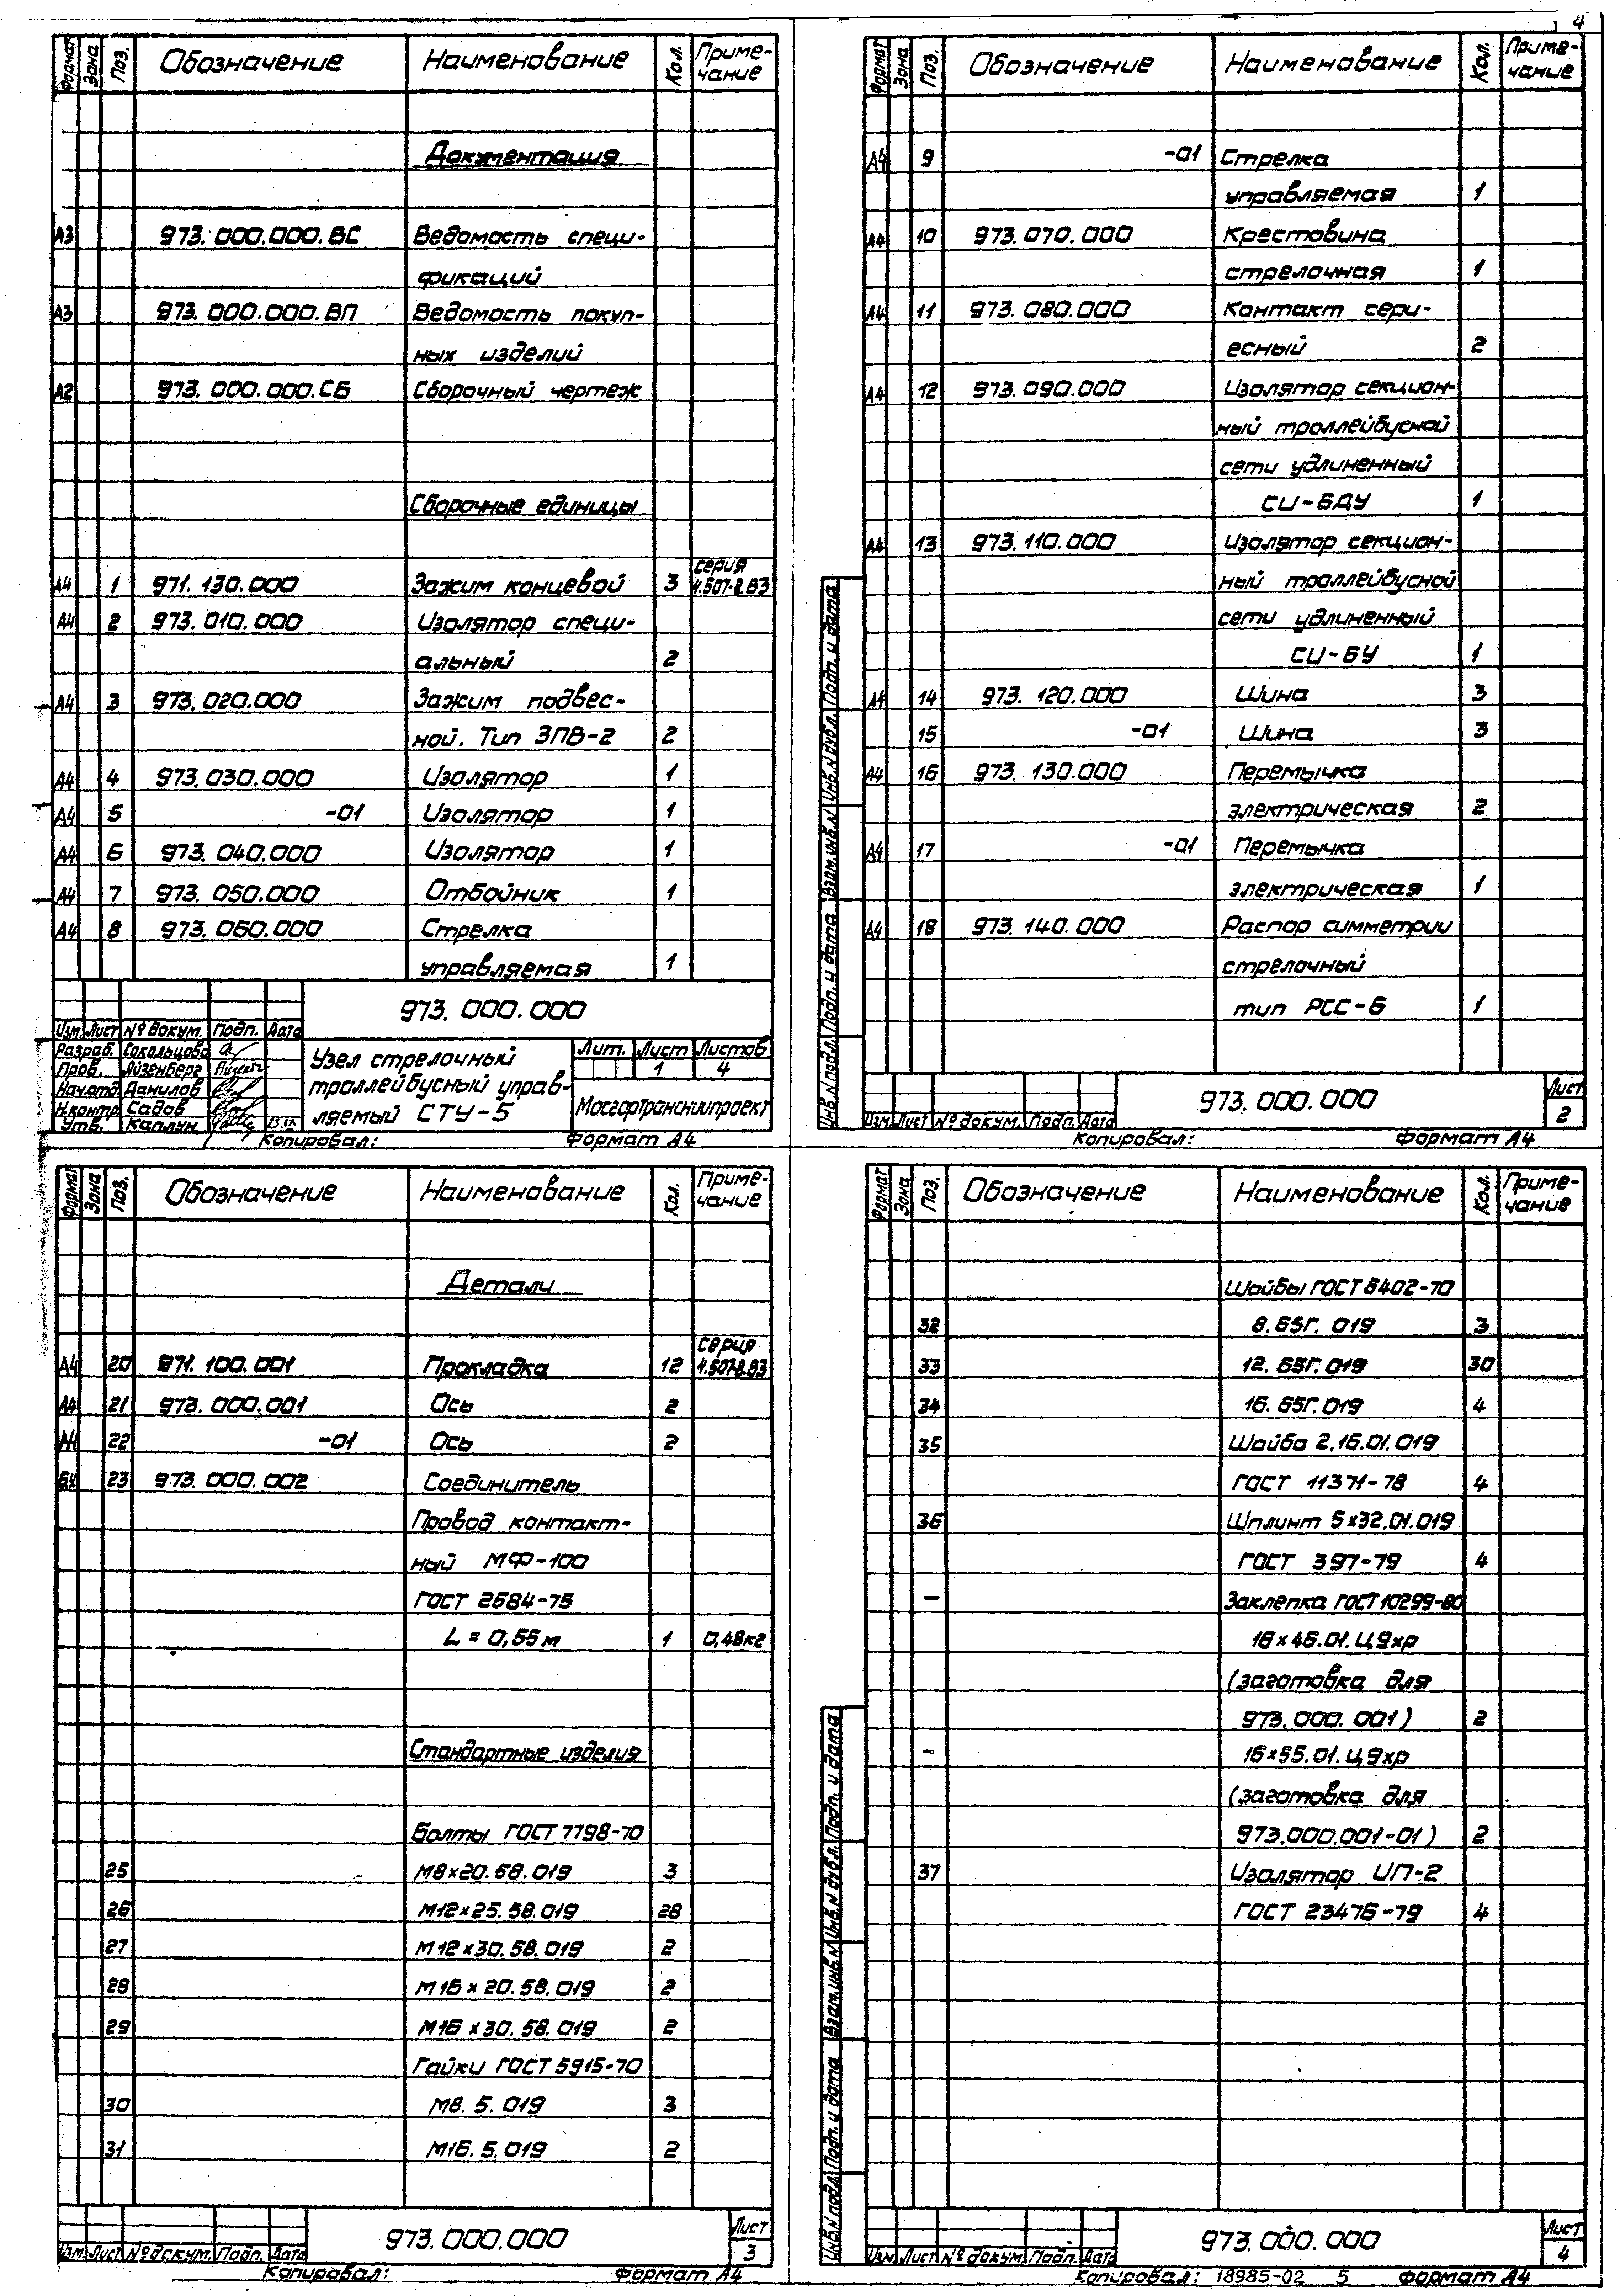 4
Формат Зона Поз. Обозначение Наименование Кол. Приме-
чание
Документация
А3 973.000.000.ВС Ведомость специ-
фикаций
А3 973.000.000.ВП Ведомость покуп-
ных изделий
А2 973.000.000.СБ Сборочный чертеж
Сборочные единицы
серия
А4 1 971.130.000 Зажим концевой 3 4.507-8.83
А4 2 973.010.000 Изолятор специ-
альный 2
А4 3 973.020.000 Зажим подвес-
ной. Тип ЗПВ-2 2
А4 4 973.030.000 Изолятор 1
А4 5 -01 Изолятор 1
А4 6 973.040.000 Изолятор 1
А4 7 973.050.000 Отбойник 1
А4 8 973.060.000 Стрелка
управляемая 1
973.000.000
Изм. Лист № докум. Подп. Дата
Разраб. Сокольцова
Пров. Айзенберг
Нач.отд. Данилов
Н.контр. Садов
Утв. Каплун
Узел стрелочный
троллейбусный управ-
ляемый СТУ-5
Лит. Лист Листов
1 4
Мосгортрансниипроект
Копировал: Формат А4
Формат Зона Поз. Обозначение Наименование Кол. Приме-
чание
А4 9 -01 Стрелка
управляемая 1
А4 10 973.070.000 Крестовина
стрелочная 1
А4 11 973.080.000 Контакт сери-
есный 2
А4 12 973.090.000 Изолятор секцион-
ный троллейбусной
сети удлиненный
СИ-6ДУ 1
А4 13 973.110.000 Изолятор секцион-
ный троллейбусной
сети удлиненный
СИ-6У 1
А4 14 973.120.000 Шина 3
15 -01 Шина 3
А4 16 973.130.000 Перемычка
электрическая 2
А4 17 -01 Перемычка
электрическая 1
А4 18 973.140.000 Распор симметрии
стрелочный
тип РСС-6 1
Инв.N подл. Подп. и дата Взам.инв.N Инв.N дубл. Подп. и дата
Изм. Лист № докум. Подп. Дата
973.000.000
Лист
2
Копировал: Формат А4
Формат Зона Поз. Обозначение Наименование Кол. Приме-
чание
Детали
серия
А4 20 971.100.001 Прокладка 12 4.507-8.83
А4 21 973.000.001 Ось 2
А4 22 -01 Ось 2
БЧ 23 973.000.002 Соединитель
Провод контакт-
ный МФ-100
ГОСТ 2584-75
L = 0,55 м 1 0,48кг
Стандартные изделия
Болты ГОСТ 7798-70
25 М8×20.58.019 3
26 М12×25.58.019 28
27 М12×30.58.019 2
28 М16×20.58.019 2
29 М16×30.58.019 2
Гайки ГОСТ 5915-70
30 М8.5.019 3
31 М16.5.019 2
Изм. Лист № докум. Подп. Дата
973.000.000
Лист
3
Копировал: Формат А4
Формат Зона Поз. Обозначение Наименование Кол. Приме-
чание
Шайбы ГОСТ 6402-70
32 8.65Г.019 3
33 12.65Г.019 30
34 16.65Г.019 4
35 Шайба 2.16.01.019
ГОСТ 11371-78 4
36 Шплинт 5×32.01.019
ГОСТ 397-79 4
– Заклепка ГОСТ 10299-80
16×46.01.Ц9хр
(заготовка для
973.000.001) 2
– 16×55.01.Ц9хр
(заготовка для
973.000.001-01) 2
37 Изолятор ИП-2
ГОСТ 23476-79 4
Инв.N подл. Подп. и дата Взам.инв.N Инв.N дубл. Подп. и дата
Изм. Лист № докум. Подп. Дата
973.000.000
Лист
4
Копировал: 18985-02 5 Формат А4